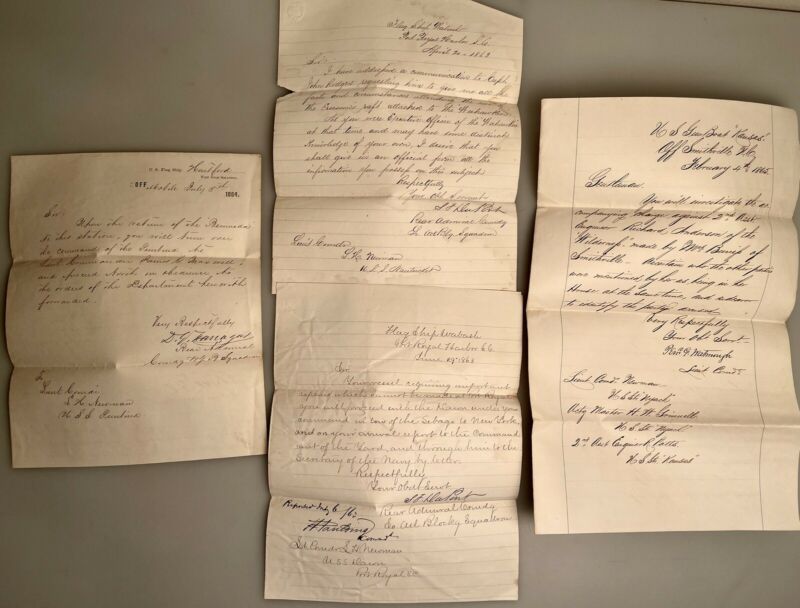 U.S. Flag Ship Hartford
OFF Mobile July 8th 1864.
Sir:
When the return of the Bermuda
to this station, you will turn over
the command of the Penobscot to
and proceed North in obedience to
the orders of the Department herewith
forwarded.
Very Respectfully
D. G. Farragut
Rear Admiral
Comdg W. G. B. Squadron
To
Lieut Comdr
L. H. Newman
U.S.S.
Flag Ship Wabash
Port Royal Harbor S.C.
April 20 - 1863
Sir:
I have addressed a communication to Capt
John Rodgers requesting him to give me all the
facts and circumstances attending the
the Ericsson's raft attached to the Weehawken.
As you were Executive Officer of the Weehawken
at that time and may have some accurate
knowledge of your own, I desire that you
shall give in an official form all the
information you possess on this subject
Respectfully
Your Obt Servant
S. F. Du Pont
Rear Admiral Comdg
So. Atl. Blkg Squadron
Lieut Comdr
L. H. Newman
U.S.S.
Flag Ship Wabash
Port Royal Harbor S.C.
June 1863
Sir:
Your vessel requiring important
repairs which cannot be made at Port Royal
you will proceed with the under your
command in tow of the Sebago to New York,
and on your arrival report to the Command-
ant of the Yard, and through him to the
Secretary of the Navy by letter.
Respectfully
Your Obdt Servt
S. F. Du Pont
Rear Admiral Comdg
So. Atl Blockg Squadron
Reported July 6 /63
Comdt
Lt Comdr L. H. Newman
U.S.S.
Port Royal S.C.
U S Gun Boat "Kansas"
Off Smithville N.C.
February 4th 1865
Gentlemen
You will investigate the ac-
companying charge against 2nd Asst
Engineer Richard Anderson of the
made by Mrs of
Smithville. Ascertain who the other parties
were mentioned by her as being in her
House at the same time, and endeavor
to identify the party accused
Very Respectfully
Your Obt Servt
Lieut Comdr
Lieut Comd. Newman
Actg Master H. W. Grinnell
2nd Asst Engineer
U.S.S. "Kansas"